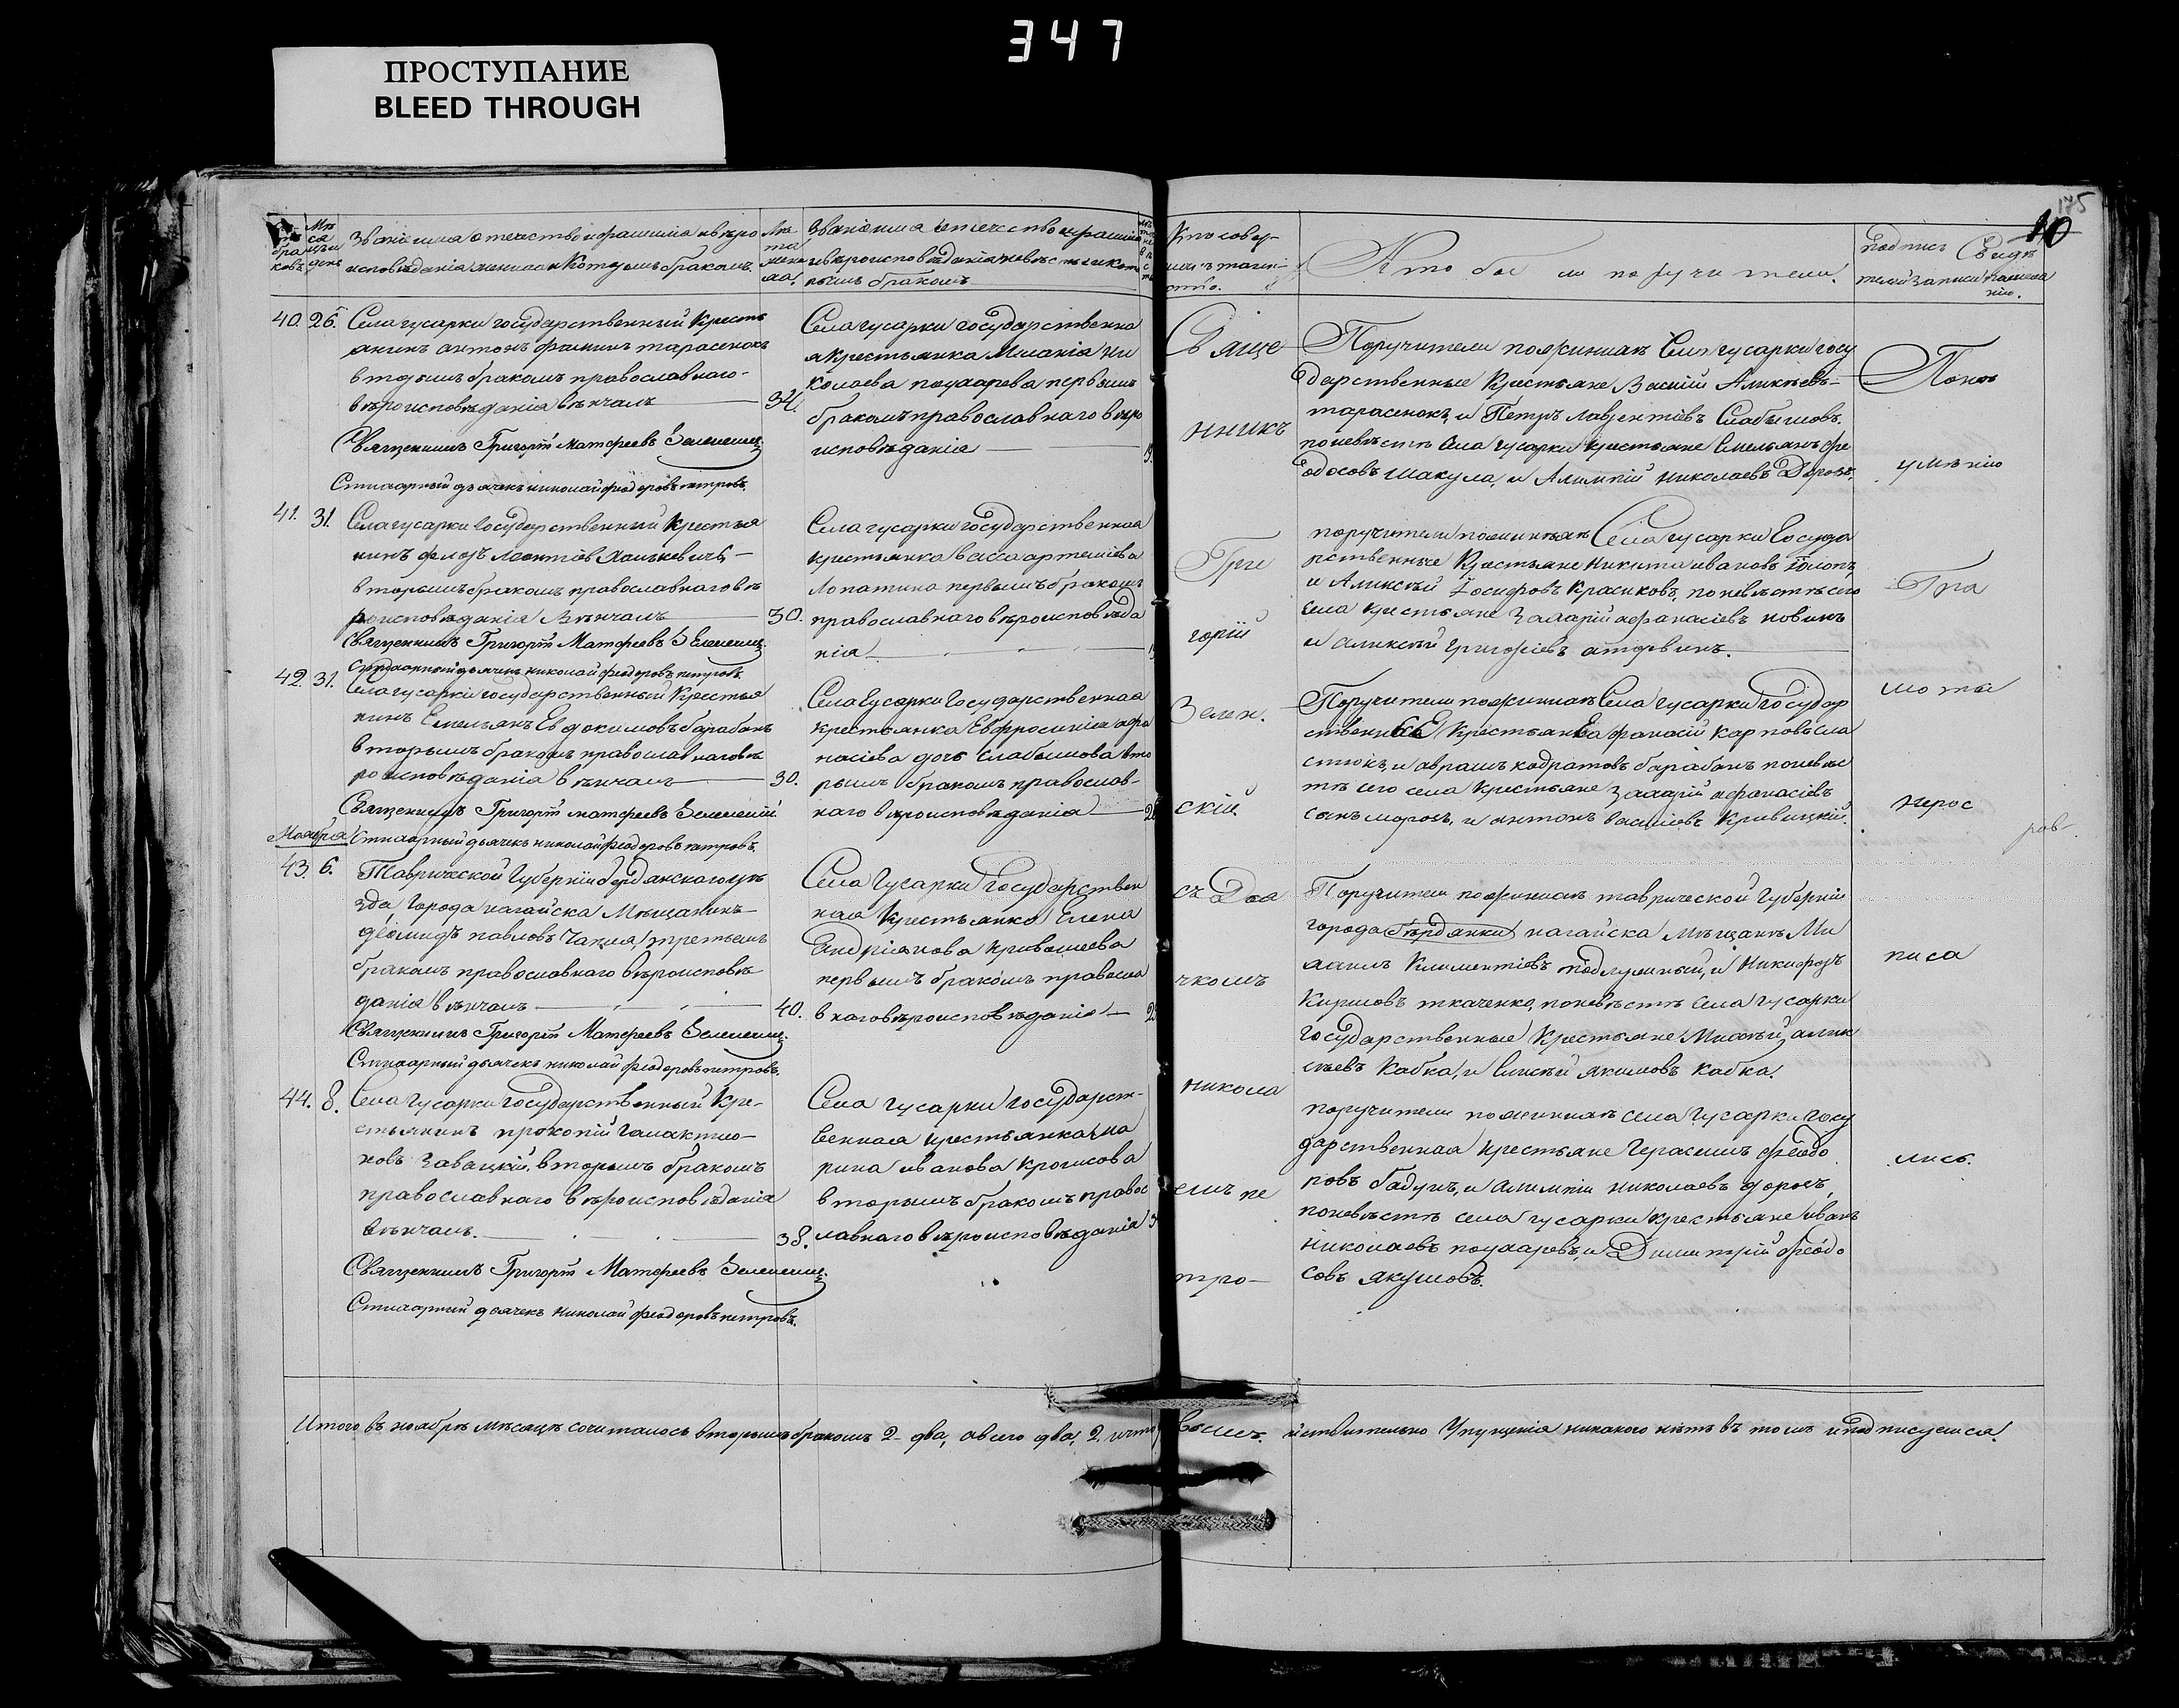 347
ПРОСТУПАНИЕ
BLEED THROUGH
175
10
Званіе имя отечество и фамилія и вѣро
исповѣданія жениха и Которымъ бракомъ.
Лѣ
та
жени
ха.
Званіе имя отечество и фамилія
и вѣроисповѣданія невѣсты и кото
рымъ бракомъ
Кто совер
шилъ таин
ство.
Кто был и поручители.
подпись Свидѣ
телей записи по жела
нію.
40. 26. Села гусарки государственный Кресть
янинъ антонъ фоминъ тарасенокъ
вторымъ бракомъ православнаго
вѣроисповѣданія вѣнчалъ 34.
Священникъ Григорій матфеевъ Зеленский
Стихарный дьячекъ николай феодоровъ петровъ.
Села гусарки государственна
я крестьянка Меланія ни
колаева поухарева первымъ
бракомъ православнаго вѣро
исповѣданія
Свяще
нникъ
Поручители по женихѣ Села гусарки госу
дарственные Крестьяне Василій Алексѣевъ
тарасенокъ, и Петръ лаврентіевъ Слабышовъ.
по невѣстѣ Села гусарки крестьяне Емельянъ фе
одосовъ шакула, и Алимпій николаевъ Дорошъ.
41. 31. Села гусарки Государственный Крестья
нинъ флоръ леонтіев Ханькевичъ
вторымъ бракомъ православнаго вѣ
роисповѣданія Вѣнчалъ 30.
Священникъ Григорій Матфеевъ Зеленский
Стихарный дьячекъ николай феодоровъ петровъ.
Села гусарки государственная
крестьянка васса артемиева
Лопатина первымъ бракомъ
православнаго вѣроисповѣда
нія
Гри
горій
поручители по женихѣ Села гусарки Госуда
рственные Крестьяне Никита ивановъ
и Алексѣй Іосифовъ Красиковъ, по невѣстѣ сего
села крестьяне Захарій афанасіевъ новикъ
и алексѣй григорьевъ
42. 31. Села гусарки государственный Крестья
нинъ Емельянъ Евдокимовъ барабанъ
вторымъ бракомъ православнаго вѣ
роисповѣданія вѣнчалъ 30.
Священникъ Григорій матфеевъ Зеленский
Стихарный дьячекъ николай феодоровъ петровъ.
Села Гусарки Государственная
крестьянка Евфросинія афа
насіева дочь Слабышова вто
рымъ бракомъ православ
наго вѣроисповѣданія
Зелен.
скій
Поручители по женихѣ Села гусарки государ
ственные Крестьяне афанасій Карповъ сла
стюкъ, и аврамъ кодратовъ барабанъ по невѣс
тѣ сего села крестьяне Захарій афанасіевъ
сынъ морозъ, и антонъ василіевъ Кривицкій.
Ноября
43. 6. Таврической Губерніи бердянскаго уѣ
зда, города нагайска Мѣщанинъ
діомидъ павловъ Чакия, третьимъ
бракомъ православнаго вѣроисповѣ
данія вѣнчалъ 40.
Священникъ Григорій Матфеевъ Зеленский
Стихарный дьячекъ николай феодоровъ петровъ.
Села Гусарки Государствен
ная Крестьянка Елена
Андріанова Кривошеева
первымъ бракомъ правосла
внаго вѣроисповѣданія
съ Дья
чкомъ
Поручители по женихѣ таврической Губерніи
города бердянки нагайска Мѣщане Ми
хаилъ Климентіевъ подлужный, и Никифоръ
Кириловъ ткаченко, по невѣстѣ Села гусарки
государственные Крестьяне Мисѣй алик
сѣевъ Кабка, и Елисѣй якимовъ Кабка.
44. 8. Села гусарки государственный Кре
стьянинъ прокопій галактио
новъ Завацкій, вторымъ бракомъ
православнаго вѣроисповѣданія
вѣнчалъ. 38.
Священникъ Григорій Матфеевъ Зеленский
Стихарный дьячекъ николай феодоровъ петровъ.
Села гусарки государст
венная крестьянка ма
рина иванова
вторымъ бракомъ правос
лавнаго вѣроисповѣданія
никола
емъ пе
тро
вымъ.
поручители по женихѣ села гусарки госу
дарственная крестьяне Герасимъ феодо
ровъ бадунъ, и алимпій николаевъ дорошъ,
по невѣстѣ села гусарки крестьяне иванъ
николаевъ поухаревъ, и Димитрій феодо
совъ якушовъ.
По не
умѣнію
Гра
моты
нерос
писа
лись.
Итого въ ноябрѣ мѣсяцѣ сочиталось вторымъ бракомъ 2 два, а всего два, 2. и что дѣйствительно Упущенія никакого нѣтъ въ томъ и подписуемся.